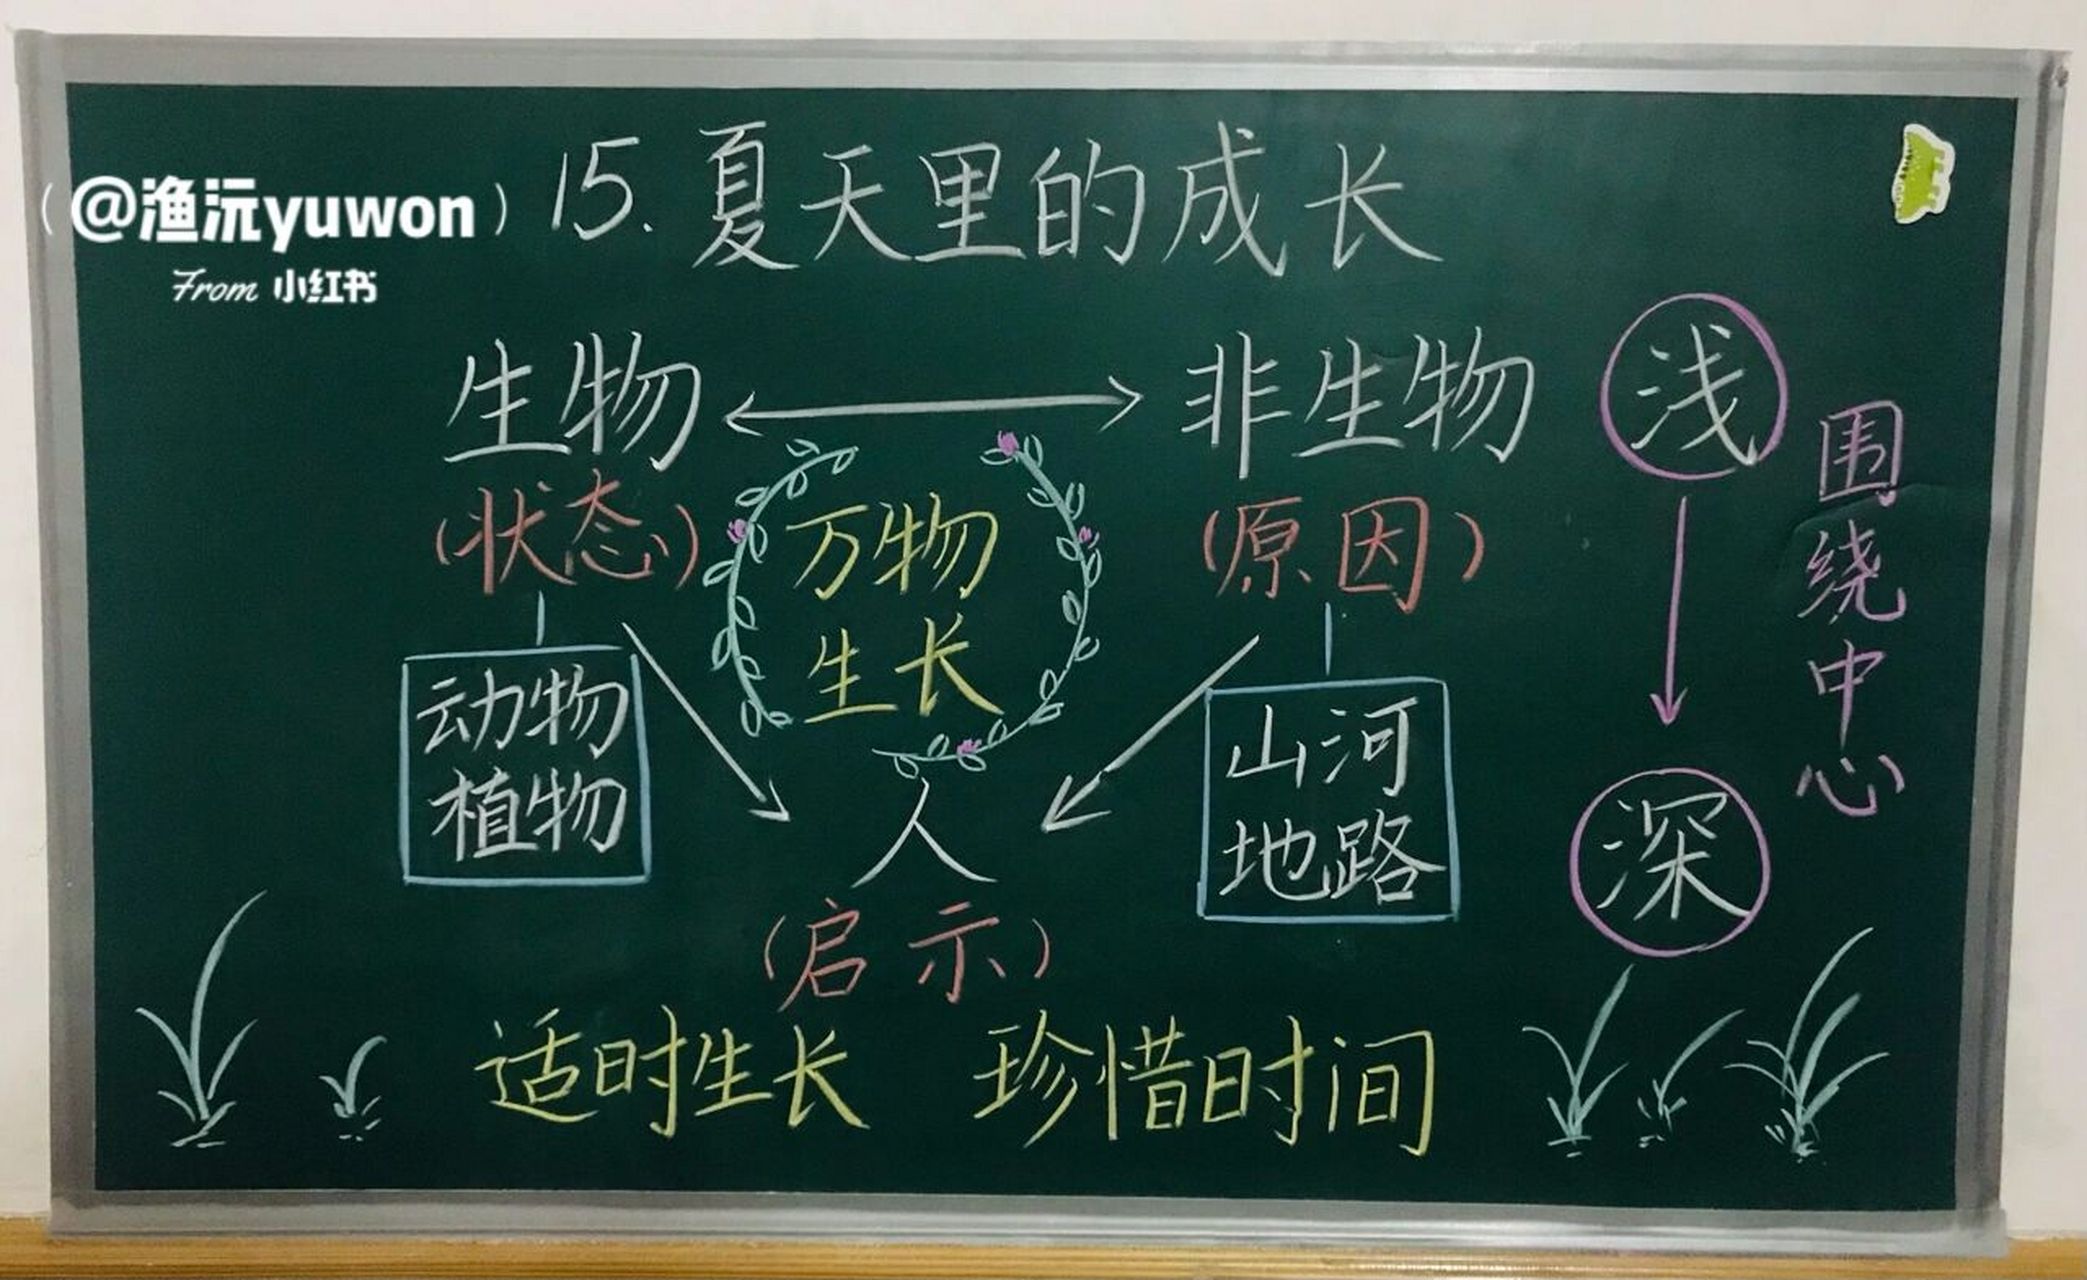 15.夏天里的成长
（@渔沅yuwon）
From 小红书
生物
非生物
(状态)
(原因)
万物
生长
动物
植物
山河
地路
人
(启示)
适时生长 珍惜时间
浅
深
围绕中心